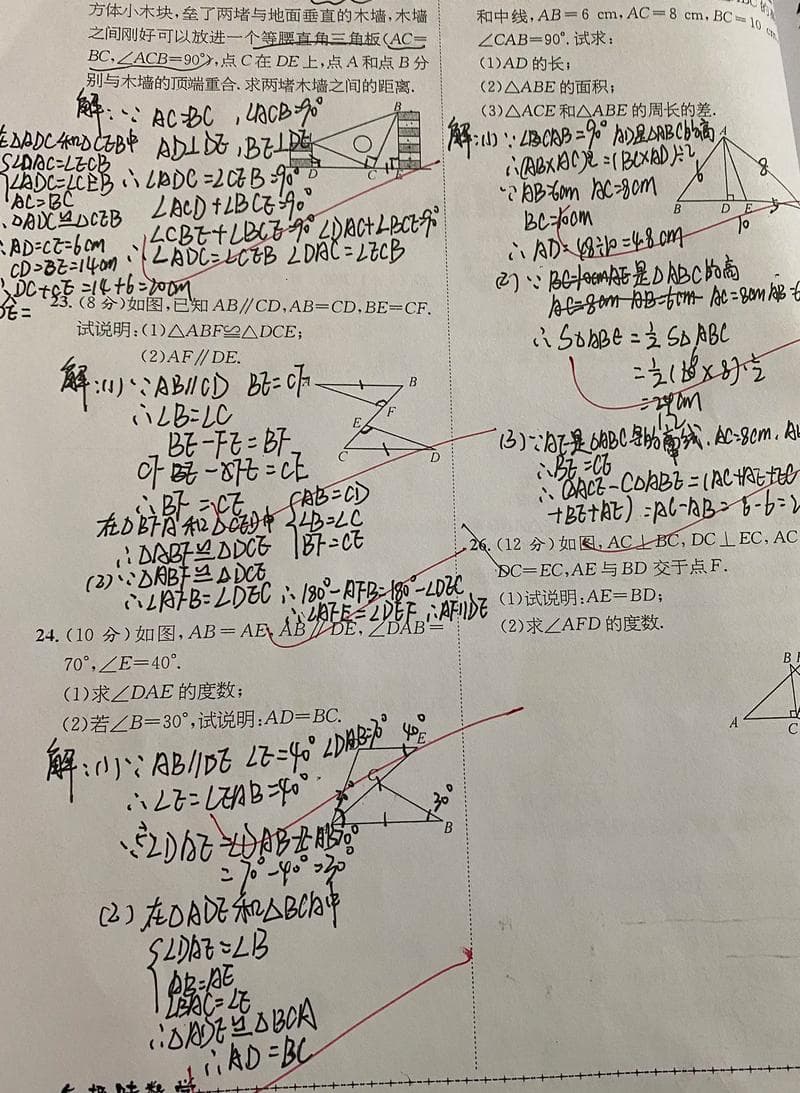 方体小木块,垒了两堵与地面垂直的木墙,木墙
之间刚好可以放进一个等腰直角三角板(AC=
BC,∠ACB=90°),点C在DE上,点A和点B分
别与木墙的顶端重合.求两堵木墙之间的距离.
解:∵ AC=BC,∠ACB=90°
AD⊥DE,BE⊥DE
∴∠ADC=∠CEB=90°
∠ACD+∠BCE=90°
∠CBE+∠BCE=90° ∠DAC+∠BCE=90°
∴ ∠ADC=∠CEB ∠DAC=∠ECB
在△ADC和△CEB中
∠DAC=∠ECB
∠ADC=∠CEB
AC=BC
△ADC≌△CEB
∴AD=CE=6cm
CD=BE=14cm
∴DC+CE=14+6=20cm
DE=
B
D
C
E
23.(8分)如图,已知AB∥CD,AB=CD,BE=CF.
试说明:(1)△ABF≌△DCE;
(2)AF∥DE.
解:(1)∵AB∥CD BE=CF
∴∠B=∠C
BE-FE=BF
CF-FE=CE
∴BF=CE
在△BFA和△CED中
AB=CD
∠B=∠C
BF=CE
∴△ABF≌△DCE
(2)∵△ABF≌△DCE
∴∠AFB=∠DEC ∴180°-AFB=180°-∠DEC
∴∠AFE=∠DEF ∴AF∥DE
B
F
E
C
D
24.(10分)如图,AB=AE,AB∥DE,∠DAB=
70°,∠E=40°.
(1)求∠DAE的度数;
(2)若∠B=30°,试说明:AD=BC.
解:(1)∵AB∥DE ∠E=40° ∠DAB=70°
∴∠E=∠EAB=40°
∠DAE=∠DAB-EAB
=70°-40°=30°
(2)在△ADE和△BCA中
∠DAE=∠B
AB=AE
∠BAC=∠E
∴△ADE≌△BCA
∴AD=BC
40°
E
C
30°
B
和中线,AB=6 cm,AC=8 cm,BC=10 cm
∠CAB=90°.试求:
(1)AD的长;
(2)△ABE的面积;
(3)△ACE和△ABE的周长的差.
解:(1)∵∠BCAB=90° AD是△ABC的高
∴(AB×AC)÷2=(BC×AD)÷2
∵AB=6cm AC=8cm
BC=10cm
∴AD=48÷10=4.8cm
A
6
8
B
D
E
10
(2)∵ BC=10cm AE是△ABC的高
AC=8cm AB=6cm AC=8cm AB=6
∴S△ABE=½S△ABC
(3)∵AE是△ABC的中线.AC=8cm,
∴BE=CE
∴C△ACE-C△ABE=(AC+AE+EC
+BE+AE)=AC-AB=8-6=2
26.(12分)如图,AC⊥BC,DC⊥EC,AC
DC=EC,AE与BD交于点F.
(1)试说明:AE=BD;
(2)求∠AFD的度数.
B
A
C